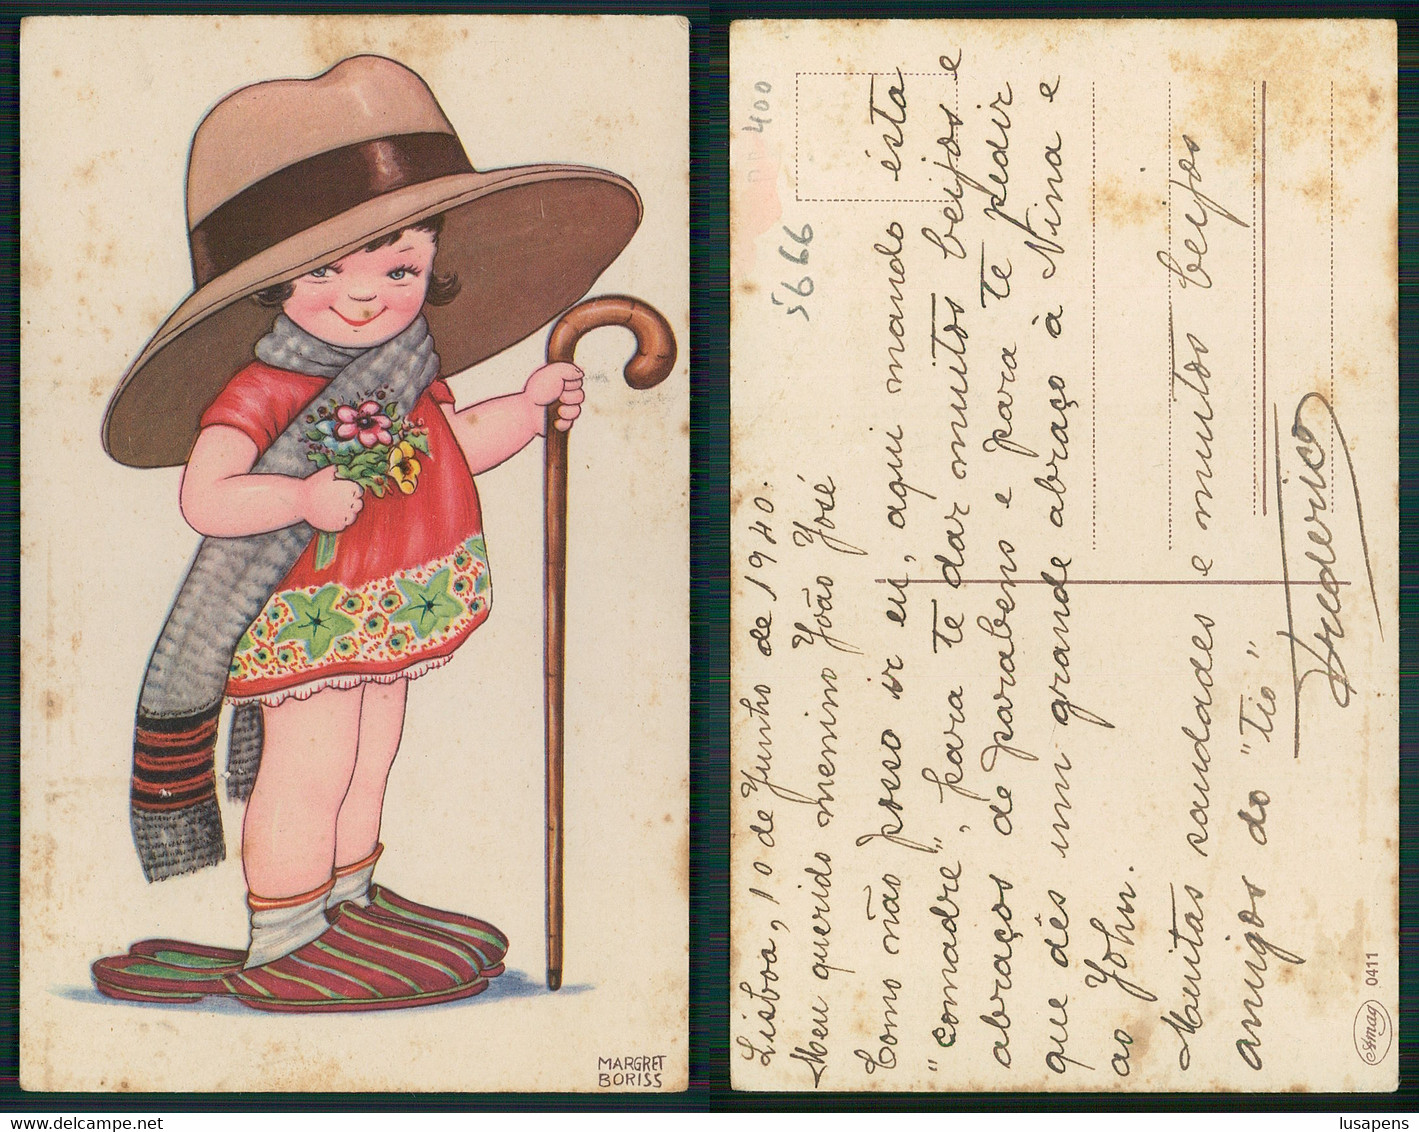 MARGRET
BORISS
400
5666
Lisboa, 10 de Junho de 1940.
Meu querido menino João José
Como não posso ir eu, aqui mando ésta
"comadre", para te dar muitos beijos e
abraços de parabens e para te pedir
que dês um grande abraço à Nina e
ao John.
Muitas saudades e muitos beijos
amigos do "tio"
Frederico
Amag 0411
delcampe.net
lusapens